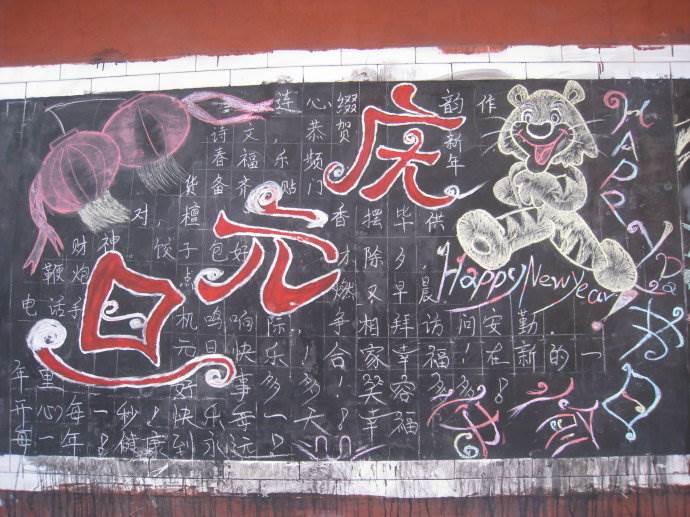 庆元旦
连心缀韵作
诗文,恭贺新
春福,乐频年
货备齐贴门
对,檀香摆毕供
财神。饺子包好才除夕,
鞭炮点燃又早晨
电话手机鸣响除,争相拜访问安勤.
元旦快乐!合家幸福!在新的一
年里好事多多!笑容多多!
开心每一秒!快乐每一天!幸福
每一年!健康到永远!
Happy New Year
HAPPY